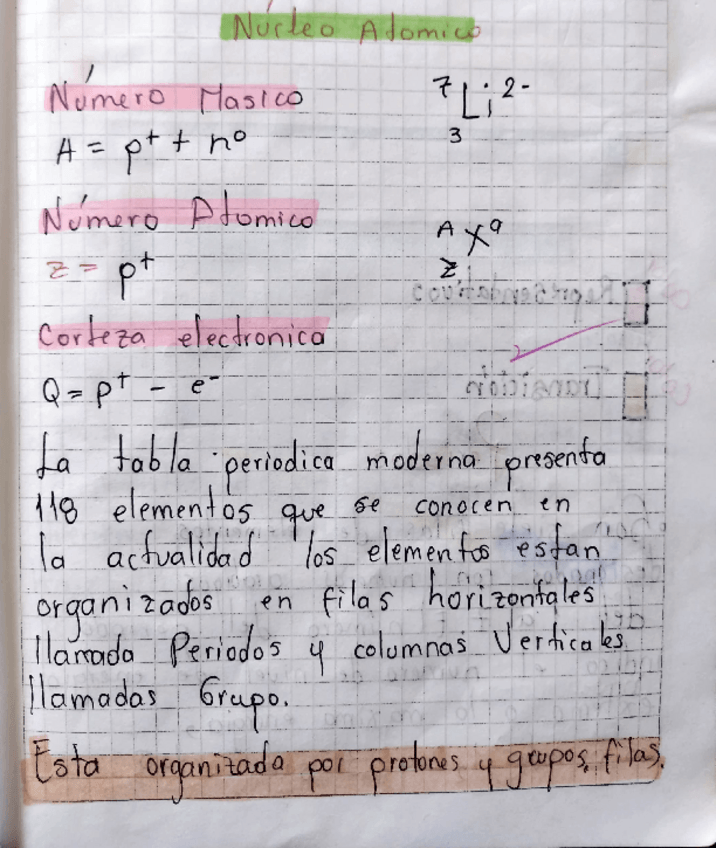 Núcleo Atomico
Número Masico
⁷₃Li²⁻
A = p⁺ + n⁰
Número Atomico
ᴬ_Z X^q
Z = p⁺
Representativos
Corteza electronica
Transición
Q = p⁺ - e⁻
La tabla periodica moderna presenta
118 elementos que se conocen en
la actualidad los elementos estan
organizados en filas horizontales
llamada Periodos y columnas Verticales
llamadas Grupo.
Esta organizada por protones y grupos, filas.